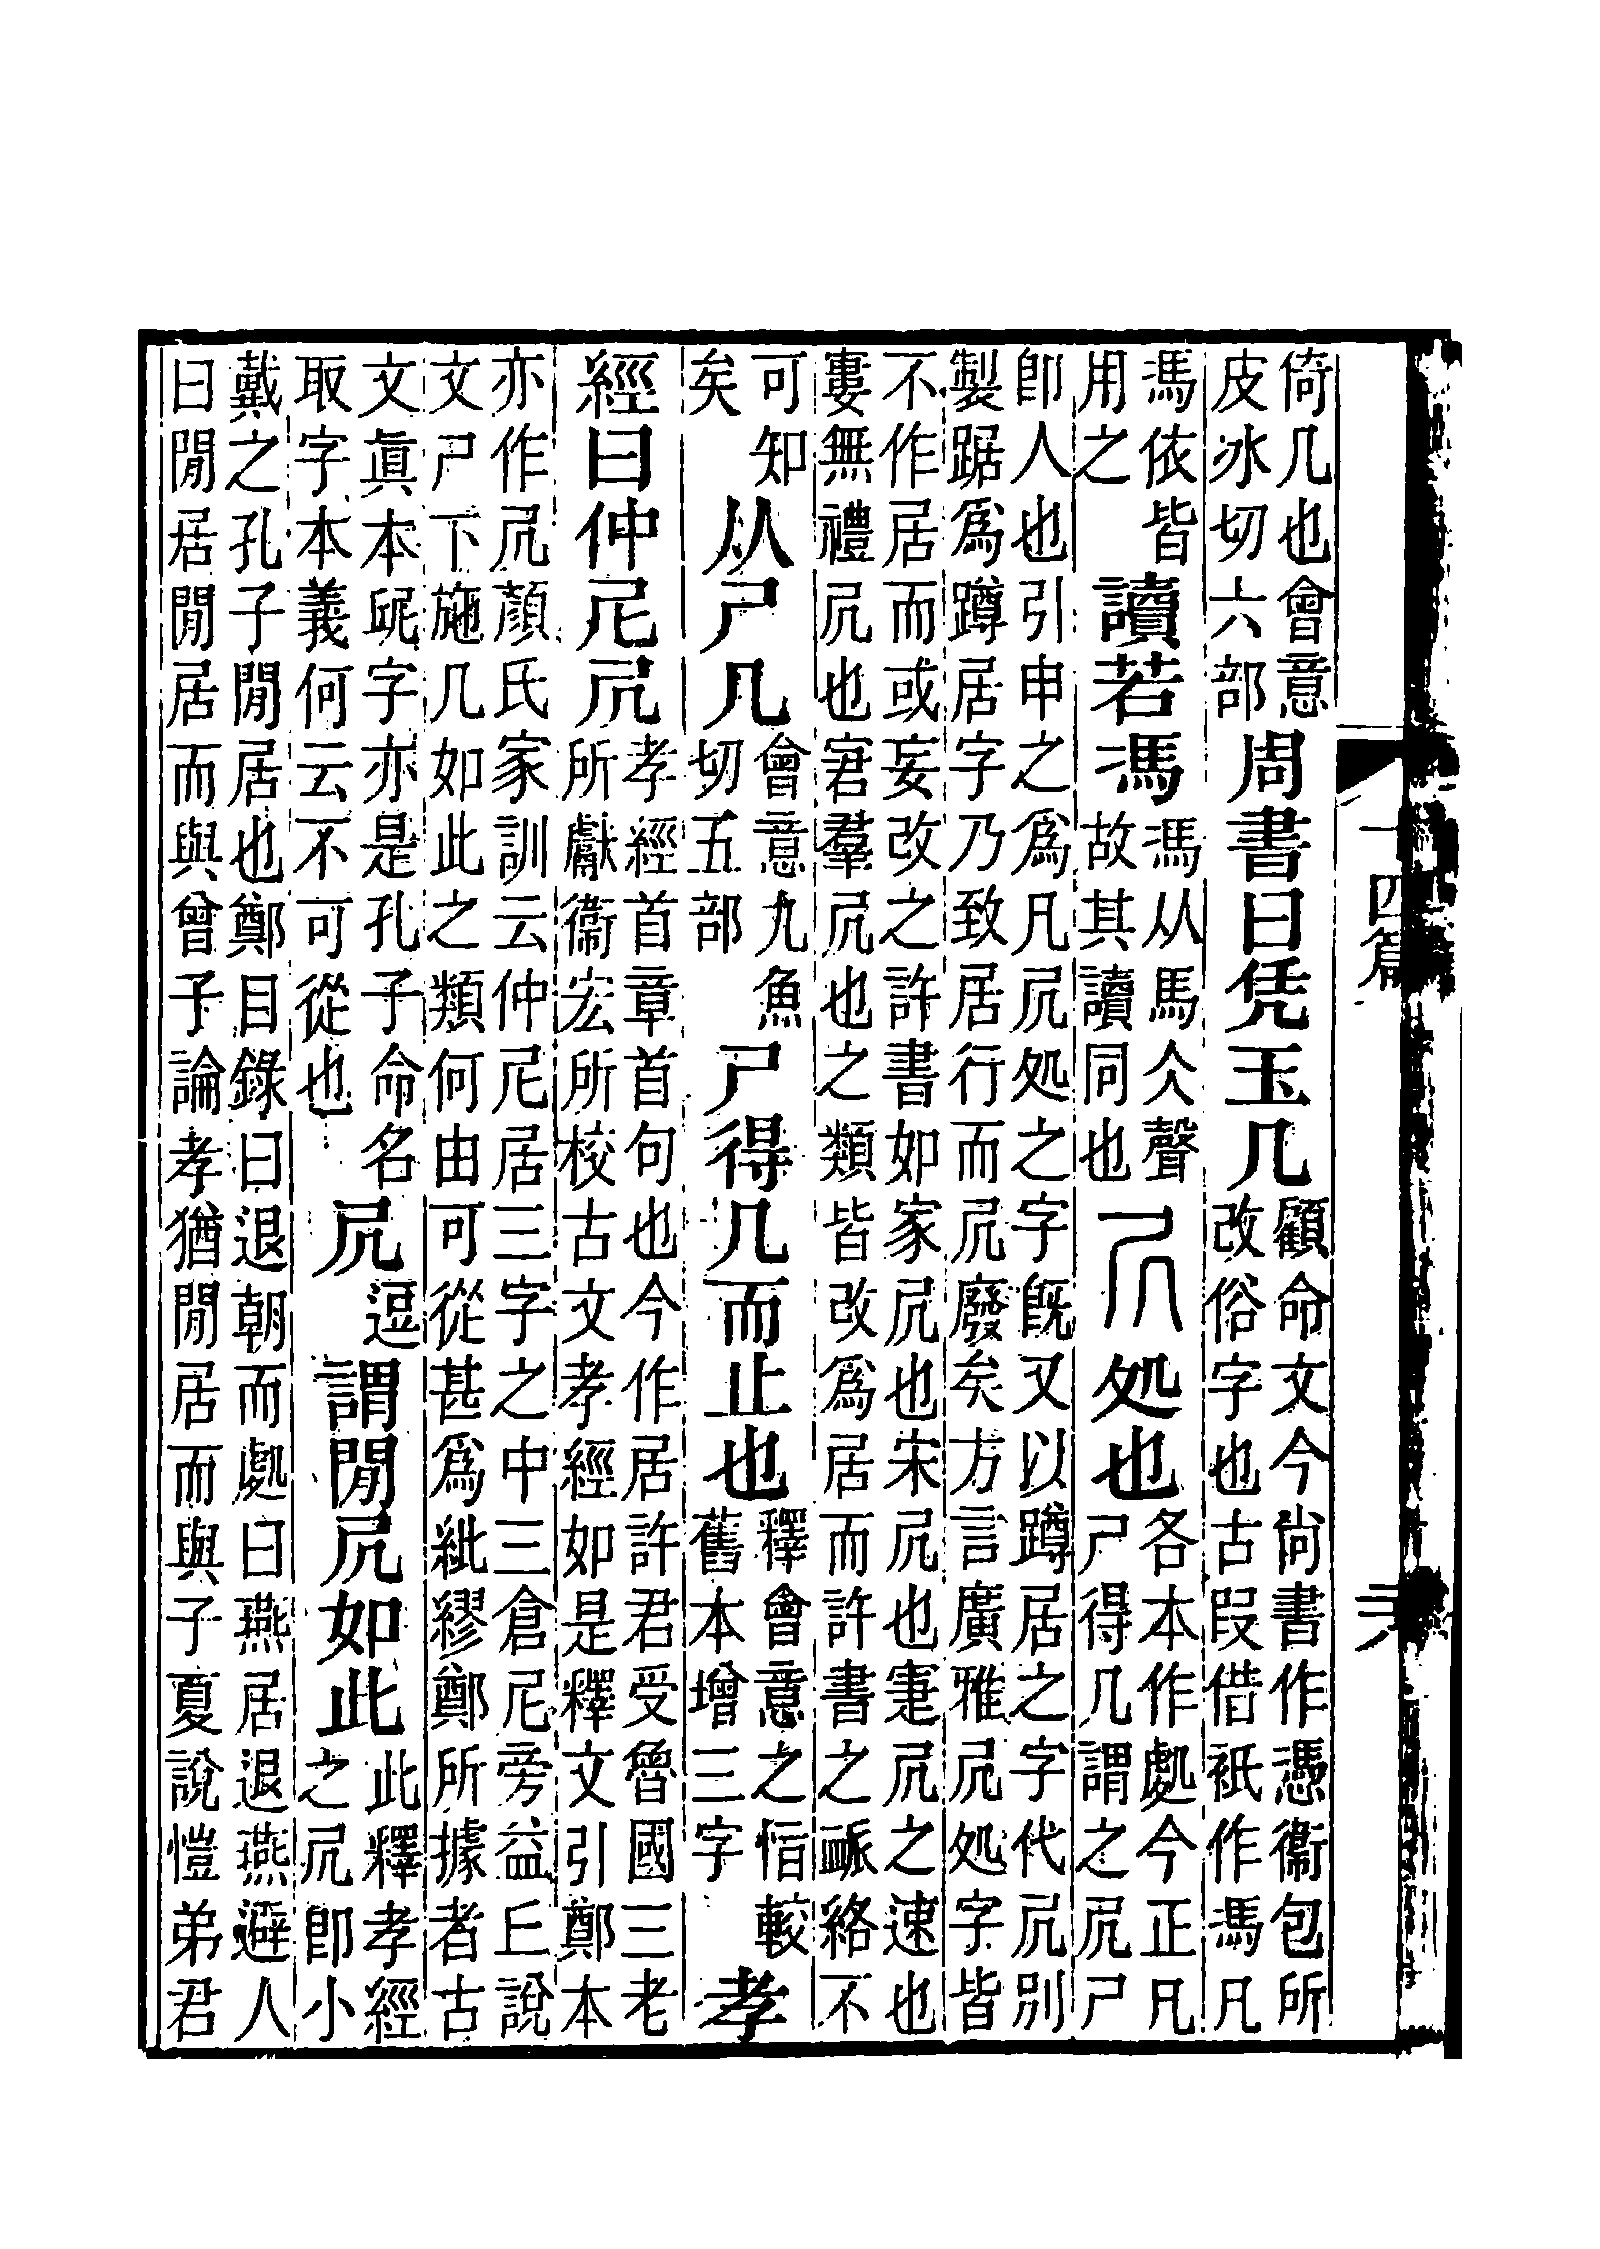 倚几也會意
皮冰切六部
周書曰凭玉几
顧命文今尙書作憑衞包所
改俗字也古叚借衹作馮凡
馮依皆
用之
讀若馮
馮从馬仌聲
故其讀同也
凥処也
各本作處今正凡
尸得几謂之凥尸
卽人也引申之爲凡凥処之字旣又以蹲居之字代凥別
製踞爲蹲居字乃致居行而凥廢矣方言廣雅凥処字皆
不作居而或妄改之許書如家凥也宋凥也寁凥之速也
婁無禮凥也宭羣凥也之類皆改爲居而許書之衇絡不
可知
矣
从尸几
會意九魚
切五部
尸得几而止也
釋會意之恉較
舊本增三字
孝
經曰仲尼凥
孝經首章首句也今作居許君受魯國三老
所獻衞宏所校古文孝經如是釋文引鄭本
亦作凥顏氏家訓云仲尼居三字之中三倉尼旁益丘說
文尸下施几如此之類何由可從甚爲紕繆鄭所據者古
文眞本𡰥字亦是孔子命名
取字本義何云不可從也
凥
逗
謂閒凥如此
此釋孝經
之凥卽小
戴之孔子閒居也鄭目錄曰退朝而處曰燕居退燕避人
曰閒居閒居而與曾子論孝猶閒居而與子夏說愷弟君
十四篇